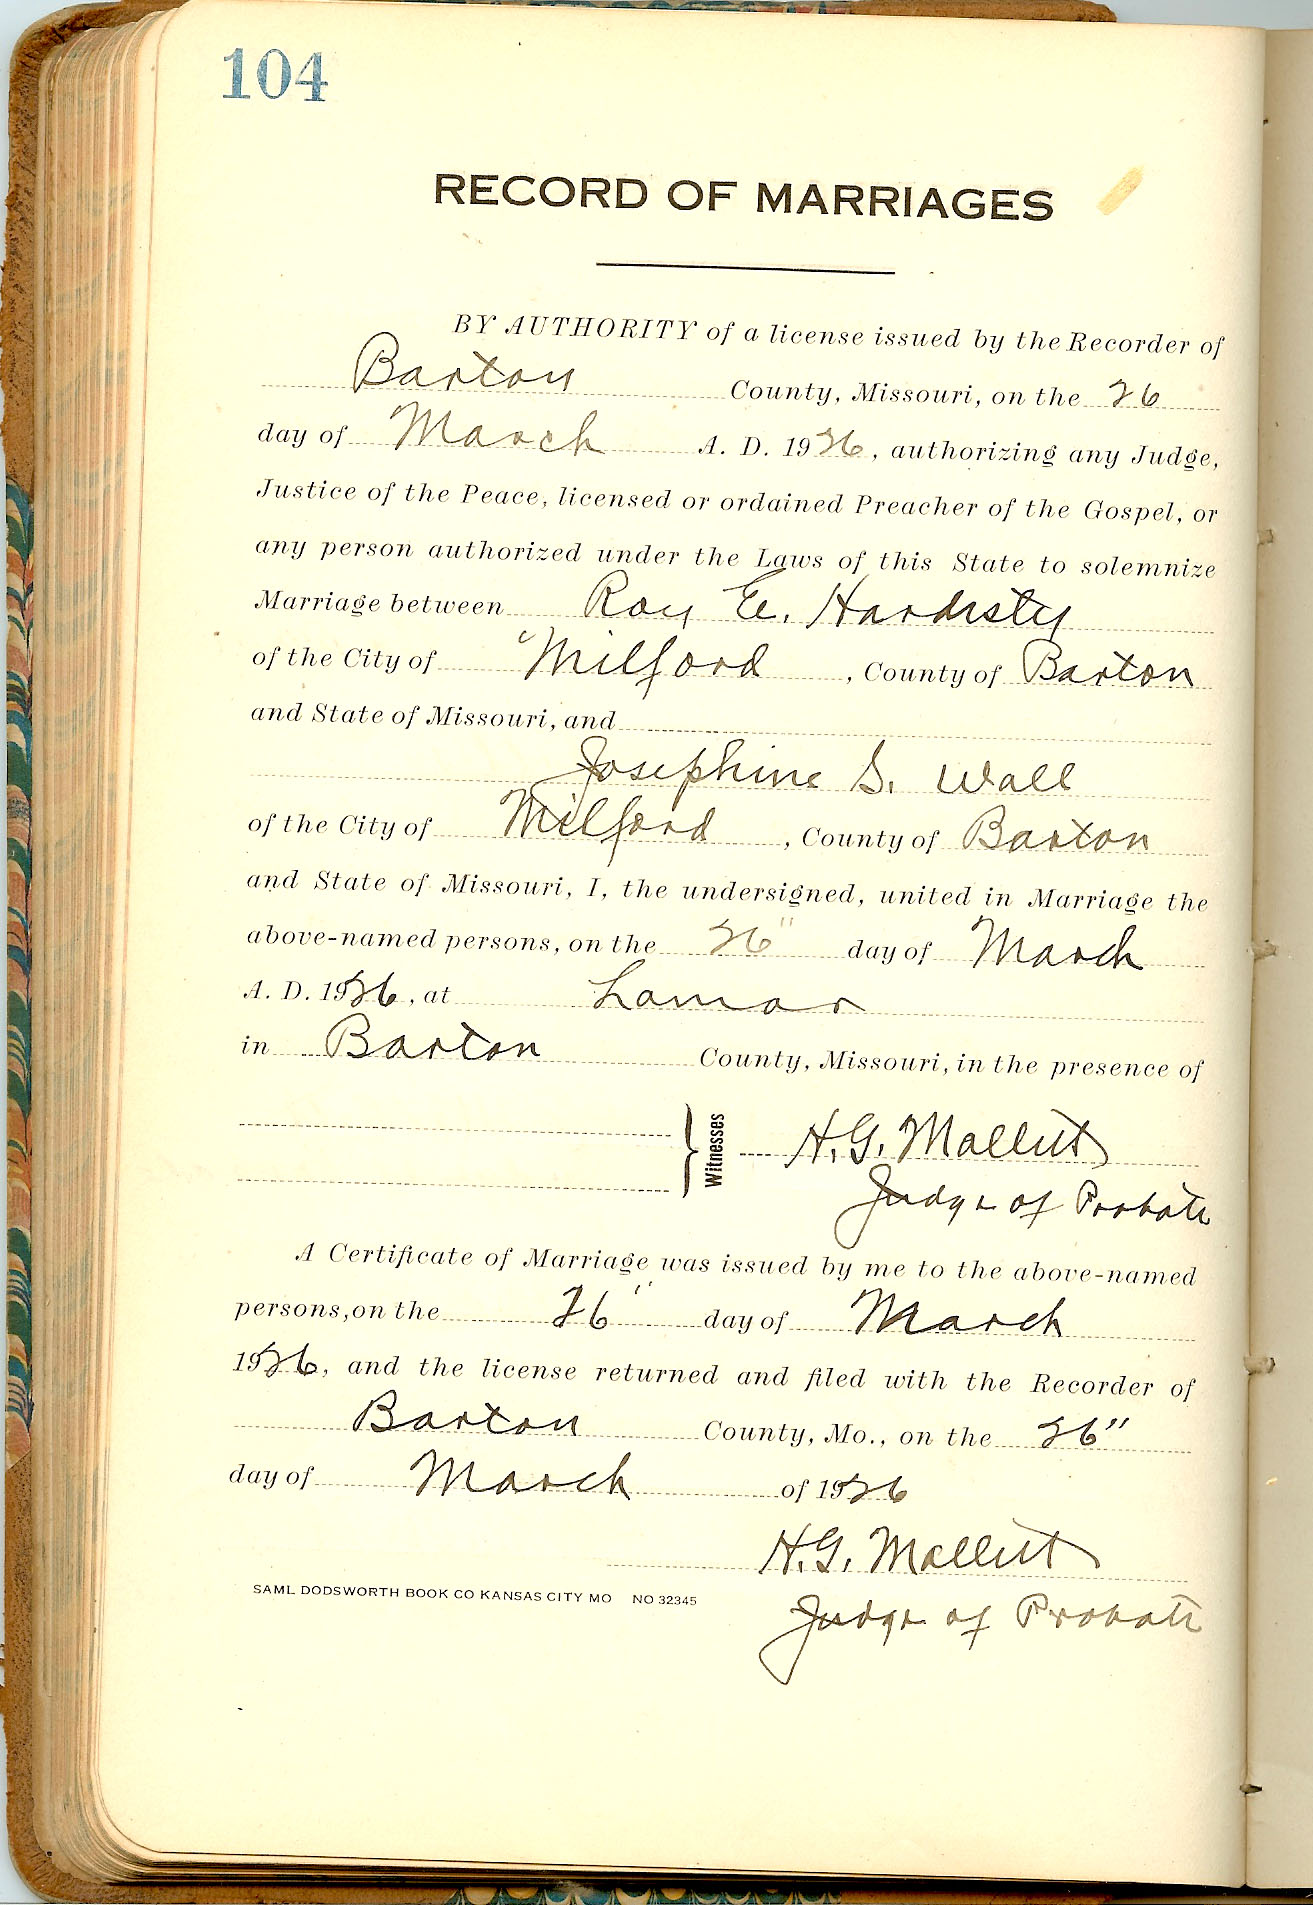 104
RECORD OF MARRIAGES
BY AUTHORITY of a license issued by the Recorder of
Barton County, Missouri, on the 26
day of March A. D. 1926, authorizing any Judge,
Justice of the Peace, licensed or ordained Preacher of the Gospel, or
any person authorized under the Laws of this State to solemnize
Marriage between Roy E. Hardisty
of the City of Milford, County of Barton
and State of Missouri, and
Josephine S. Wall
of the City of Milford, County of Barton
and State of Missouri, I, the undersigned, united in Marriage the
above-named persons, on the 26" day of March
A. D. 1926, at Lamar
in Barton County, Missouri, in the presence of
Witnesses H.G. Mallett
Judge of Probate
A Certificate of Marriage was issued by me to the above-named
persons, on the 26" day of March
1926, and the license returned and filed with the Recorder of
Barton County, Mo., on the 26"
day of March of 1926
H.G. Mallett
SAML DODSWORTH BOOK CO KANSAS CITY MO NO 32345
Judge of Probate